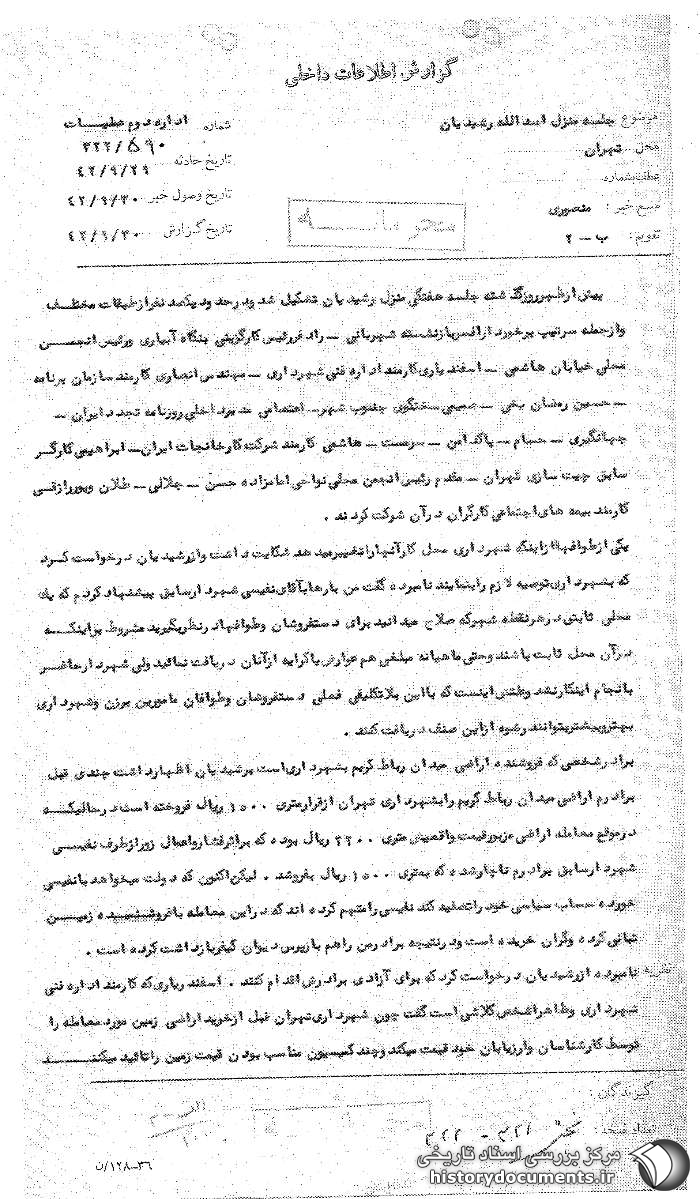 گزارش اطلاعات داخلی
موضوع جلسه منزل اسدالله رشیدیان
محل تهران
عطف بشماره
منبع خبر : منصوری
تقویم : ب - ۲
شماره اداره دوم عملیات
۳۲۲/۵۹۰
تاریخ حادثه ۴۲/۹/۲۹
تاریخ وصول خبر ۴۲/۹/۳۰
تاریخ گزارش ۴۲/۹/۳۰
محرمانه
پیش از ظهر روز گذشته جلسه هفتگی منزل رشیدیان تشکیل شد و در حدود یکصد نفر از طبقات مختلف
و از جمله سرتیپ برخورد ار افسر بازنشسته شهربانی – راد فر رئیس کارگزینی بنگاه آبیاری و رئیس انجمن
محلی خیابان هاشمی – اسفندیاری کارمند اداره فنی شهرداری – مهندس انصاری کارمند سازمان برنامه
– حسین رمضان یخی – صمیمی سخنگوی جنوب شهر – اعتصامی مدیر داخلی روزنامه تجدد ایران –
جهانگیری – حسام – پاکدامن – سرمست – هاشمی کارمند شرکت کارخانجات ایران – ابراهیمی کارگر
سابق چیت سازی تهران – مقدم رئیس انجمن محلی نواحی امامزاده حسن – جلالی – طلان و پوررازقی
کارمند بیمه های اجتماعی کارگران در آن شرکت کردند .
یکی از طوافها از اینکه شهرداری محل کار آنها را تغییر میدهد شکایت داشت و از رشیدیان درخواست کرد
که بشهرداری توصیه لازم را بنمایند نامبرده گفت من بارها بآقای نفیسی شهردار سابق پیشنهاد کردم که یک
محلی ثابتی در هر نقطه شهر که صلاح میدانید برای دستفروشان و طوافها در نظر بگیرید مشروط بر اینکه
در آن محل ثابت باشند و حتی ماهیانه مبلغی هم عوارض یا کرایه از آنان دریافت نمائید ولی شهردار حاضر
بانجام اینکار نشد و علتش اینست که با این بلاتکلیفی فعلی دستفروشان و طوافان مامورین برزن و شهرداری
بهتر و بیشتر میتوانند رشوه از این صنف دریافت کنند .
برادر شخصی که فروشنده اراضی میدان رباط کریم بشهرداری است برشیدیان اظهار داشت چندی قبل
برادرم اراضی میدان رباط کریم را بشهرداری تهران از قرار متری ۱۵۰۰ ریال فروخته است در حالیکه
در موقع معامله اراضی مزبور قیمت واقعیش متری ۲۲۰۰ ریال بوده که بر اثر فشار و اعمال زور از طرف نفیسی
شهردار سابق برادرم ناچار شده که بمتری ۱۵۰۰ ریال بفروشد . لیکن اکنون که دولت میخواهد با نفیسی
خورده حساب سیاسی خود را تصفیه کند نفیسی را متهم کرده اند که در این معامله با فروشنده زمین
تبانی کرده و گران خریده است و در نتیجه برادر من را هم بازپرس دیوان کیفر بازداشت کرده است .
نامبرده از رشیدیان درخواست کرد که برای آزادی برادرش اقدام کنند . اسفندیاری که کارمند اداره فنی
شهرداری و ظاهرا شخص کلاشی است گفت چون شهرداری تهران قبل از خرید اراضی زمین مورد معامله را
توسط کارشناسان و ارزیابان خود قیمت میکند و چند کمیسیون مناسب بودن قیمت زمین را تائید میکند
نظریه
گیرندگان :
۳۲۱ – ۳۲۲
۳۶–۱۲۸/ن
مرکز بررسی اسناد تاریخی
historydocuments.ir